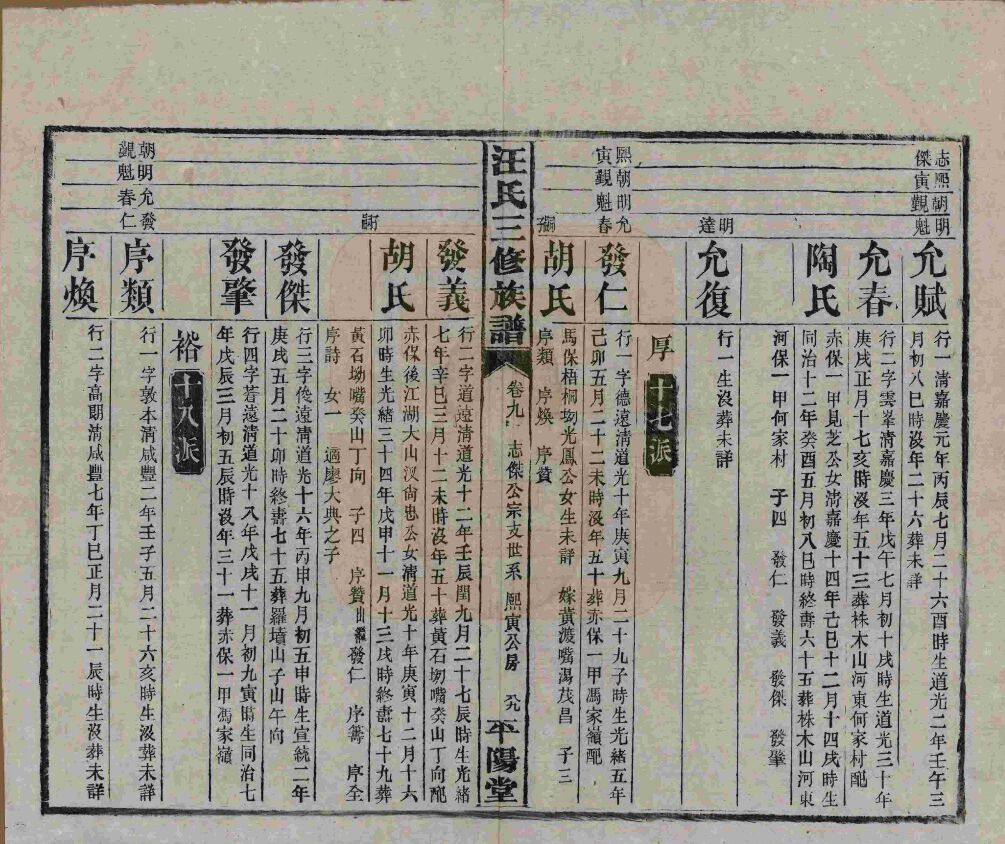 志熙朝明
傑寅覲魁
允賦
行一清嘉慶元年丙辰七月二十六酉時生道光二年壬午三
月初八巳時沒年二十六葬未詳
允春
行二字雲峯清嘉慶三年戊午七月初十戌時生道光三十年
庚戌正月十七亥時沒年五十三葬株木山河東何家村配
陶氏
赤保一甲見芝公女清嘉慶十四年己巳十二月十四戌時生
同治十二年癸酉五月初八巳時終壽六十五葬株木山河東
河保一甲何家村 子四 發仁 發義 發傑 發肇
明達
允復
行一生沒葬未詳
厚 十七派
熙朝明允
寅覲魁春
發仁
行一字德遠清道光十年庚寅九月二十九子時生光緒五年
己卯五月二十二未時沒年五十葬赤保一甲馮家嶺配
胡氏
馬保梧桐坳光鳳公女生未詳 嫁黃渡嘴湯茂昌 子三
序類 序煥 序贊
汪氏三修族譜 卷九 志傑公宗支世系 熙寅公房 平陽堂
發義
行二字道遠清道光十二年壬辰閏九月二十七辰時生光緒
七年辛巳三月十二未時沒年五十葬黃石坳嘴癸山丁向配
胡氏
赤保後江湖大山汊尙忠公女清道光十年庚寅十二月十六
卯時生光緒三十四年戊申十一月十三戌時終壽七十九葬
黃石坳嘴癸山丁向 子四 序贊出繼發仁 序籌 序全
序詩 女一 適廖大典之子
發傑
行三字俊遠清道光十六年丙申九月初五申時生宣統二年
庚戌五月二十卯時終壽七十五葬羅墳山子山午向
發肇
行四字著遠清道光十八年戊戌十一月初九寅時生同治七
年戊辰三月初五辰時沒年三十一葬赤保一甲馮家嶺
裕 十八派
朝明允發
覲魁春仁
序類
行一字敦本清咸豐二年壬子五月二十六亥時生沒葬未詳
序煥
行二字高朗清咸豐七年丁巳正月二十一辰時生沒葬未詳